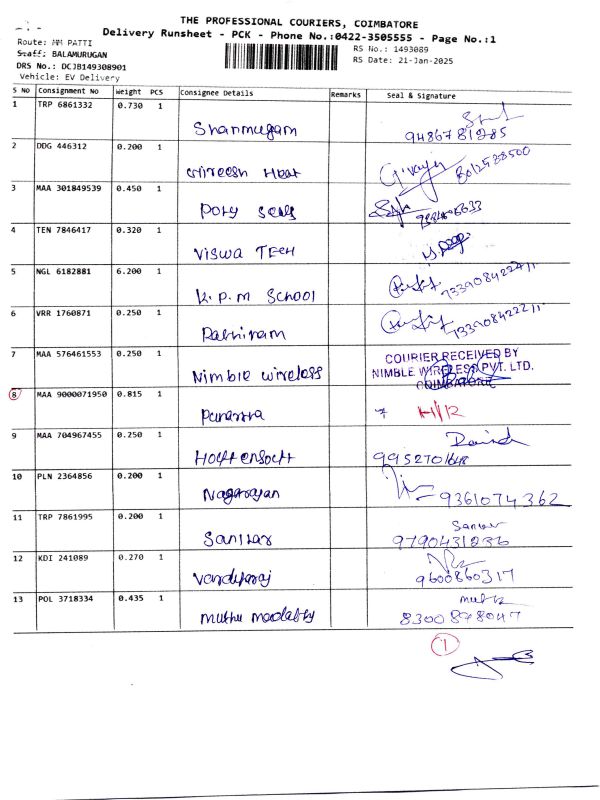 THE PROFESSIONAL COURIERS, COIMBATORE
Delivery Runsheet - PCK - Phone No.:0422-3505555 - Page No.:1
Route: MM PATTI
Staff: BALAMURUGAN
DRS No.: DCJB149308901
Vehicle: EV Delivery
RS No.: 1493089
RS Date: 21-Jan-2025
S No Consignment No Weight PCS Consignee Details Remarks Seal & Signature
1 TRP 6861332 0.730 1
Shanmugam 9486781285
2 DDG 446312 0.200 1
Gireesh Heat 8012588500
3 MAA 301849539 0.450 1
Poly seals
4 TEN 7846417 0.320 1
Viswa TECH
5 NGL 6182881 6.200 1
K.P.M SCHOOL
6 VRR 1760871 0.250 1
7 MAA 576461553 0.250 1
Nimble wireless
COURIER RECEIVED BY
NIMBLE WIRELESS PVT. LTD.
COIMBATORE
8 MAA 9000071950 0.815 1
9 MAA 704967455 0.250 1
10 PLN 2364856 0.200 1
Nagarajan 9361074362
11 TRP 7861995 0.200 1
9790431236
12 KDI 241089 0.270 1
9600860317
13 POL 3718334 0.435 1
8300898047
1